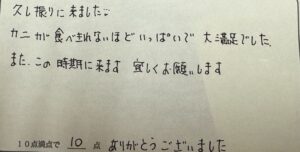 久し振りに来ました。
カニカが食べきれないほどいっぱいで 大満足でした。
また、この時期に来ます 宜しくお願いします
10点満点で 10 点 ありがとうございました